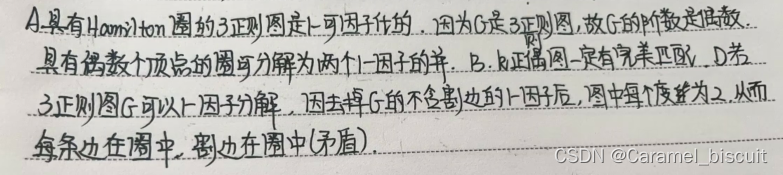 A.具有Hamilton圈的3正则图是1-可因子化的.因为G是3正则图,故G的阶数是偶数.
具有偶数个顶点的圈可分解为两个1-因子的并. B. k正则偶图一定有完美匹配. D若
3正则图G可以1-因子分解,因去掉G的不含割边的1-因子后,图中每个度数为2.从而
每条边在圈中,割边在圈中(矛盾).
CSDN @Caramel_biscuit